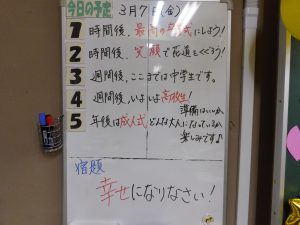 今日の予定
3月7日(金)
1 時間後、最高の卒業式にしよう!
2 時間後、笑顔で花道をくぐろう!
3 週間後、ここまでは中学生です。
4 週間後、いよいよ高校生!
準備はいいか
5 年後は成人式 どんな大人になっているか
楽しみです♪
宿題
幸せになりなさい!